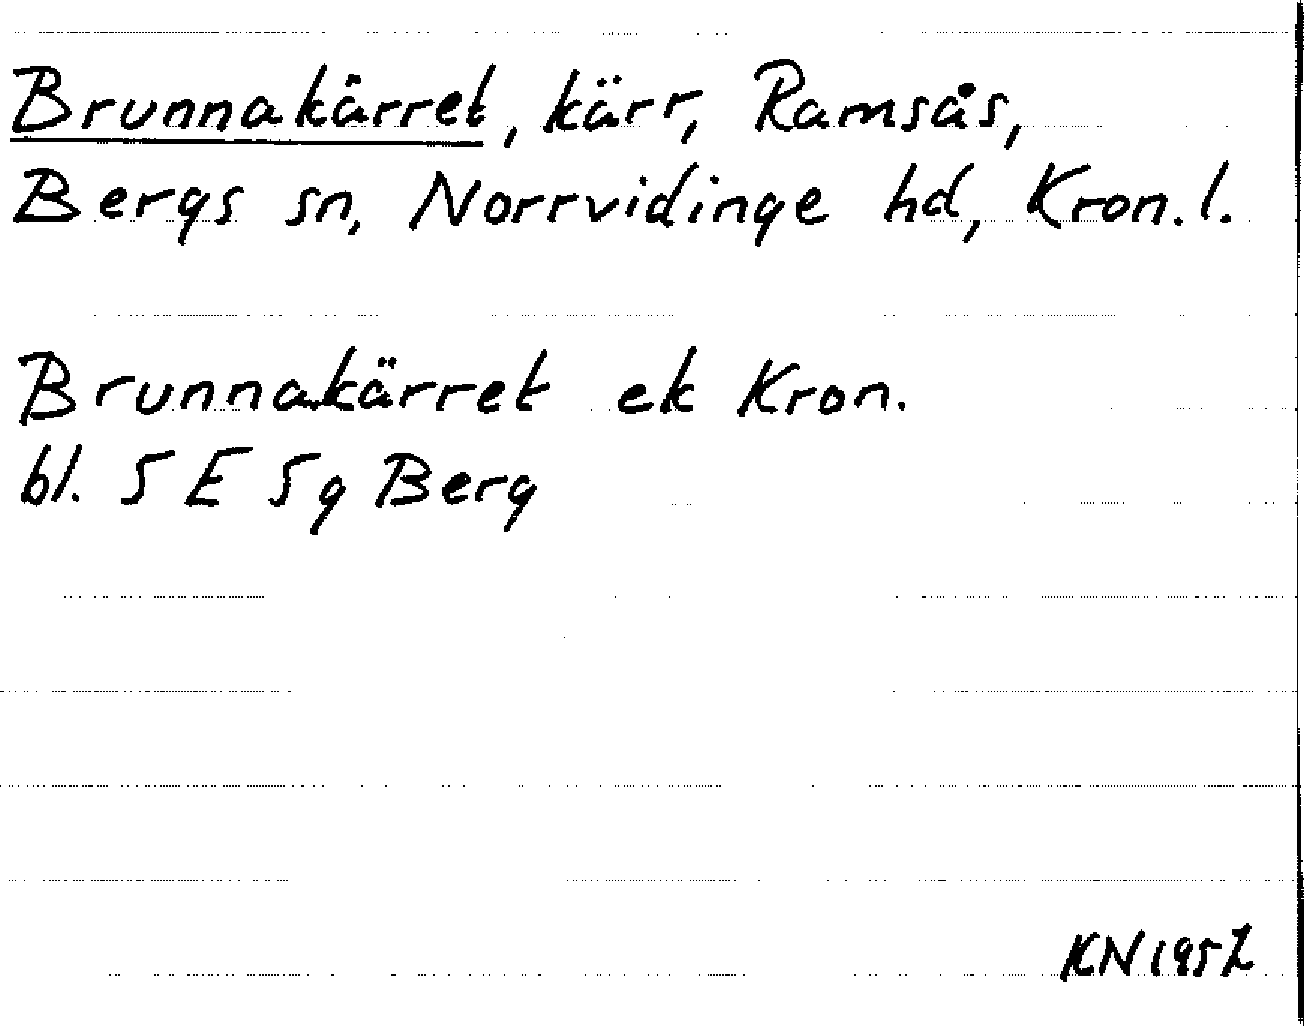 Brunnakärret, kärr, Ramsås,
Bergs sn, Norrvidinge hd, Kron. l.
Brunnakärret ek Kron.
bl. 5 E 5 g Berg
KN 1957